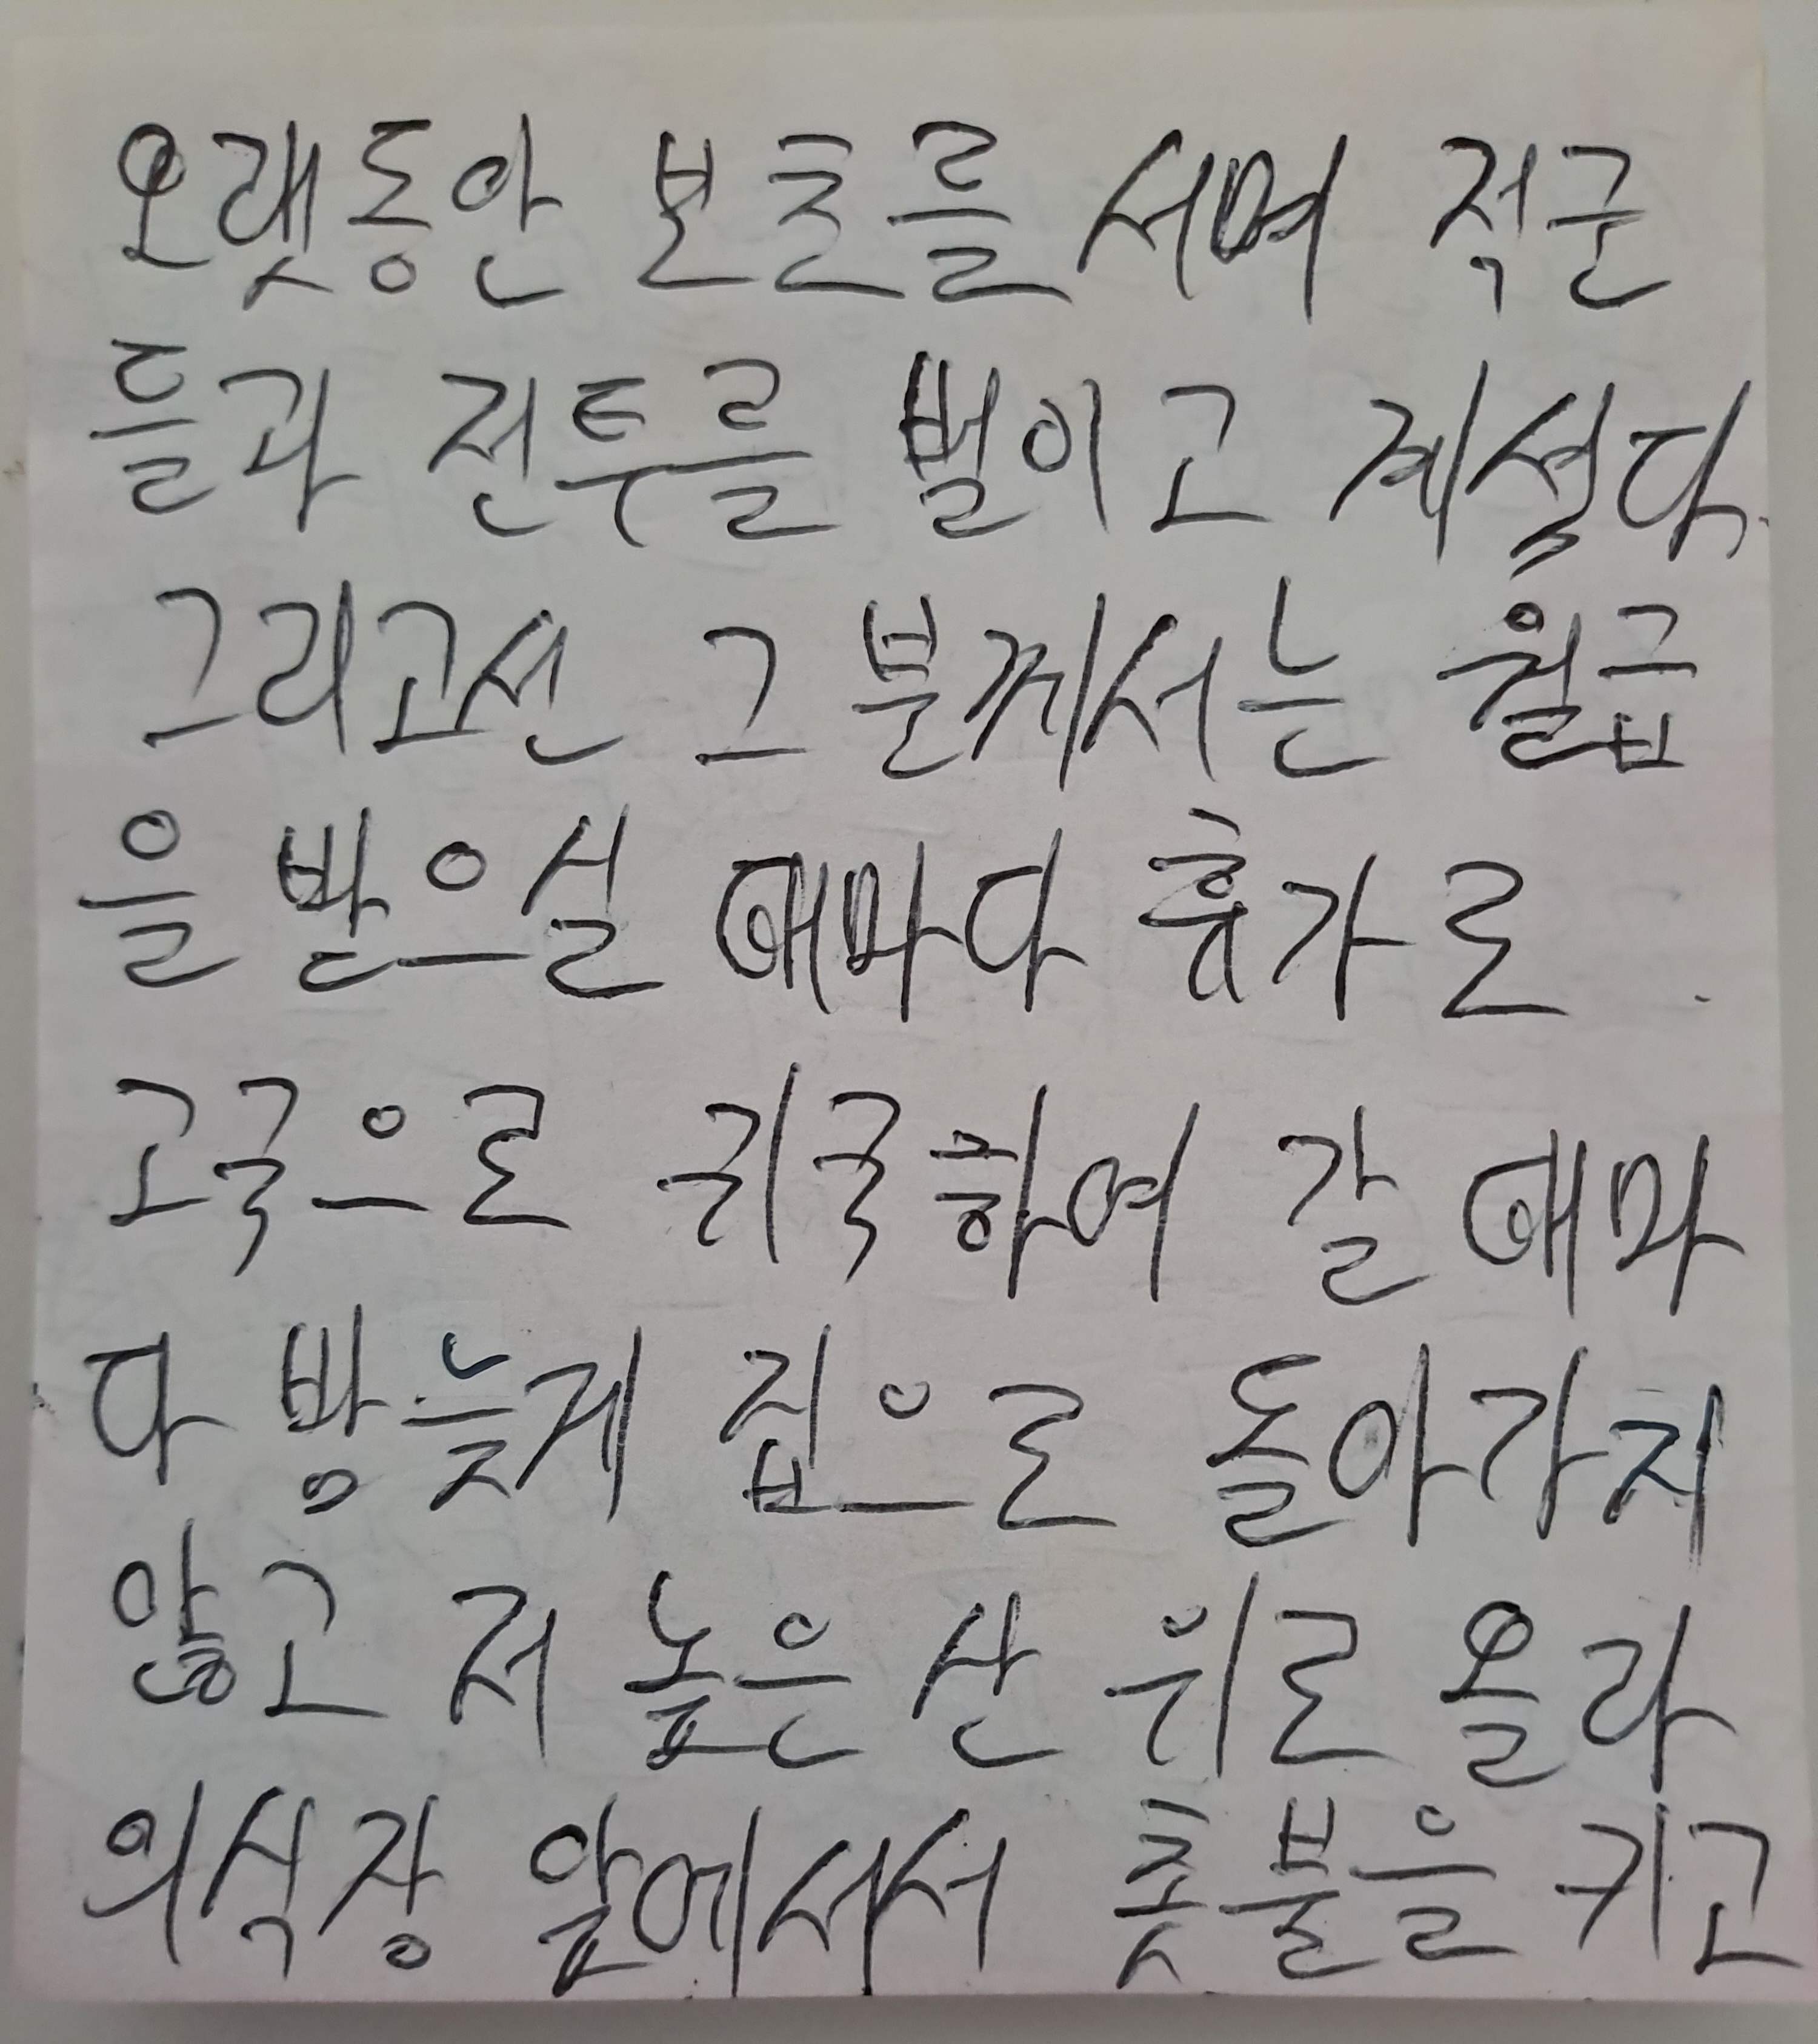 오랫동안 본초를 서며 적군
들과 전투를 벌이고 계셨다.
그리고선 그 분께서는 월급
을 받으실 때마다 휴가로
고국으로 귀국하여 갈 때마
다 밤늦게 집으로 돌아가지
않고 저 높은 산 위로 올라
의식장 앞에서서 촛불을 키고